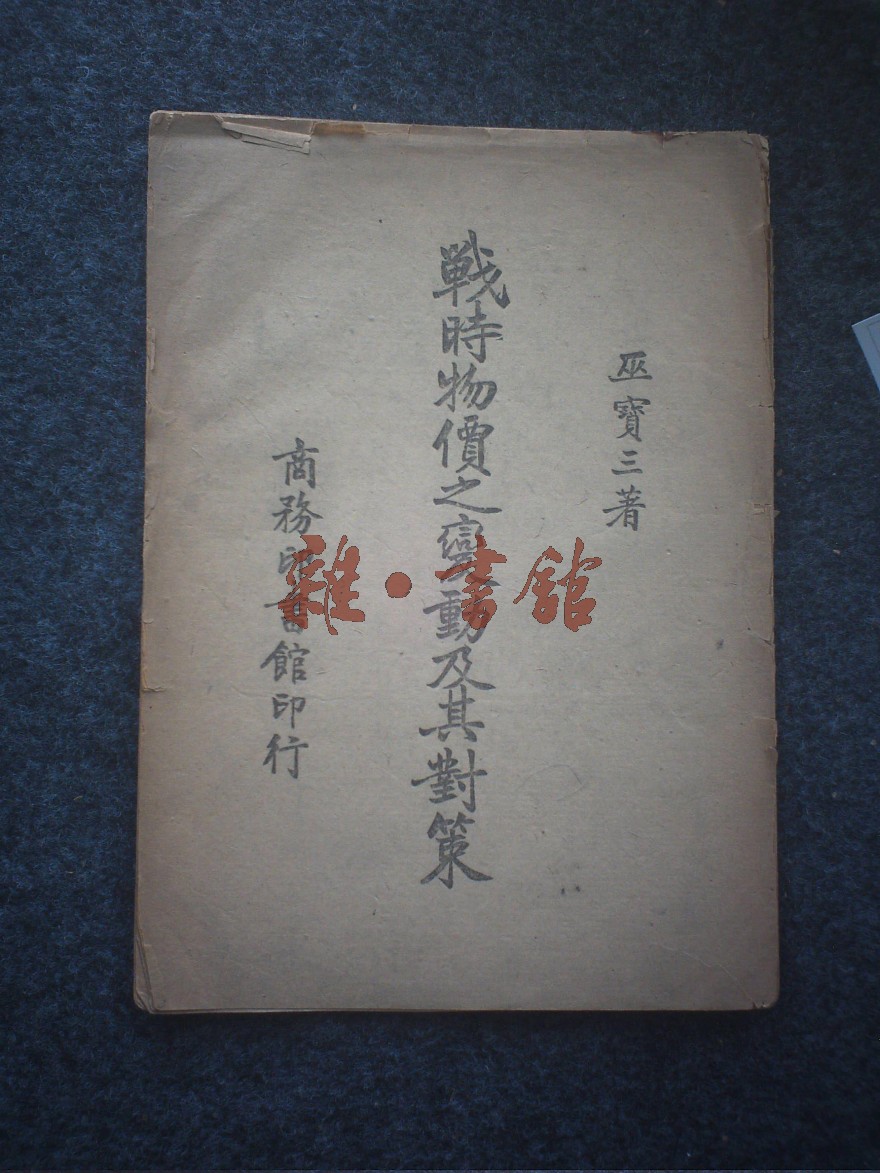 巫寶三著
戰時物價之變動及其對策
商務印書館印行
雜·書館